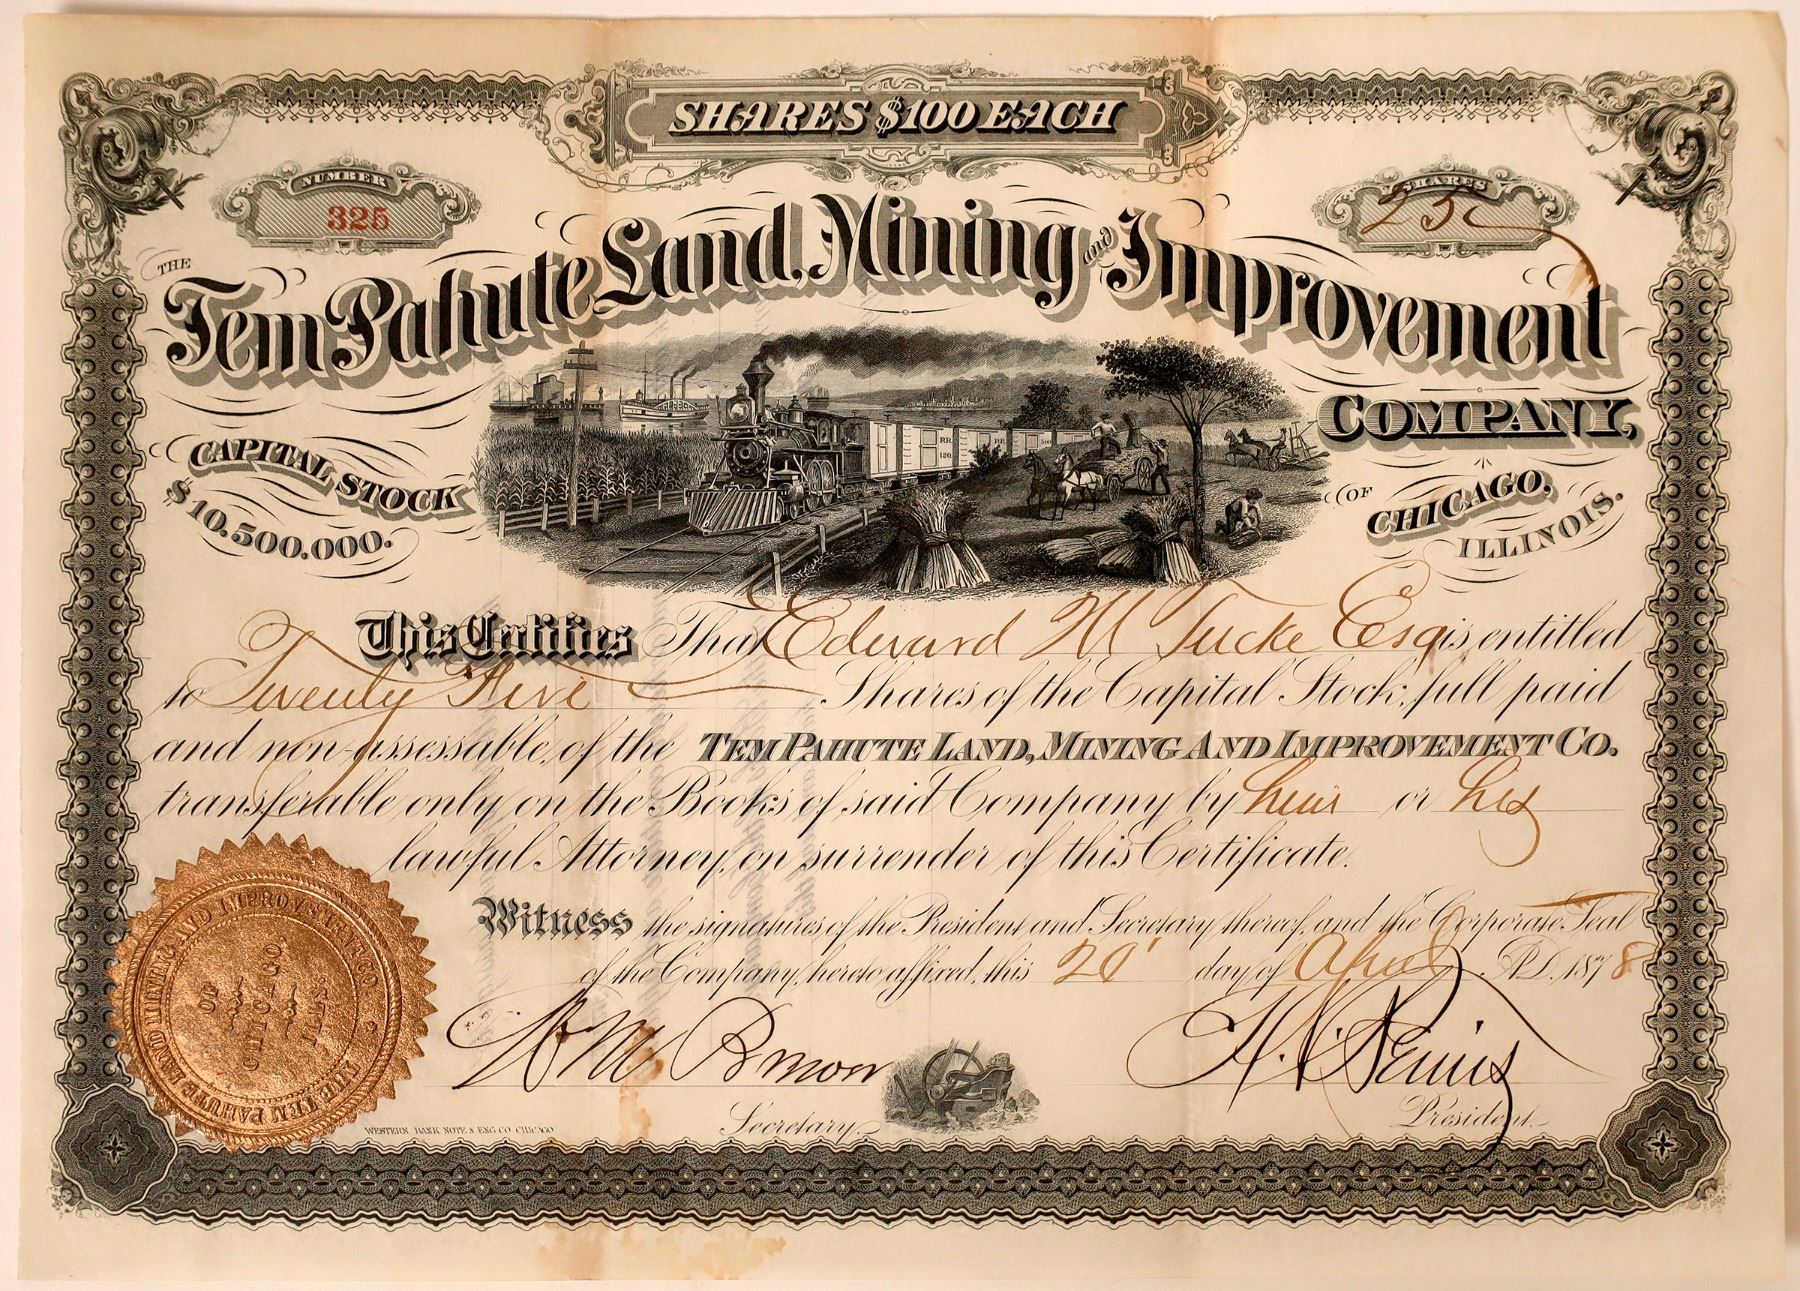 SHARES $100 EACH
NUMBER
325
SHARES
25
THE
Tem Pahute Land, Mining and Improvement
COMPANY,
CAPITAL STOCK
$10,500,000.
OF
CHICAGO,
ILLINOIS.
RR
120
RR
500
This Certifies That Edward M Tucke Esq is entitled
to Twenty Five Shares of the Capital Stock, full paid
and non-assessable, of the TEM PAHUTE LAND, MINING AND IMPROVEMENT CO.
transferable only on the Books of said Company by him or his
lawful Attorney, on surrender of this Certificate.
Witness the signatures of the President and Secretary thereof, and the Corporate Seal
of the Company, hereto affixed, this 20 day of April A.D. 1878
Secretary.
President.
WESTERN BANK NOTE & ENG. CO. CHICAGO
THE TEM PAHUTE LAND MINING AND IMPROVEMENT CO.
OF
CHICAGO,
ILLS.